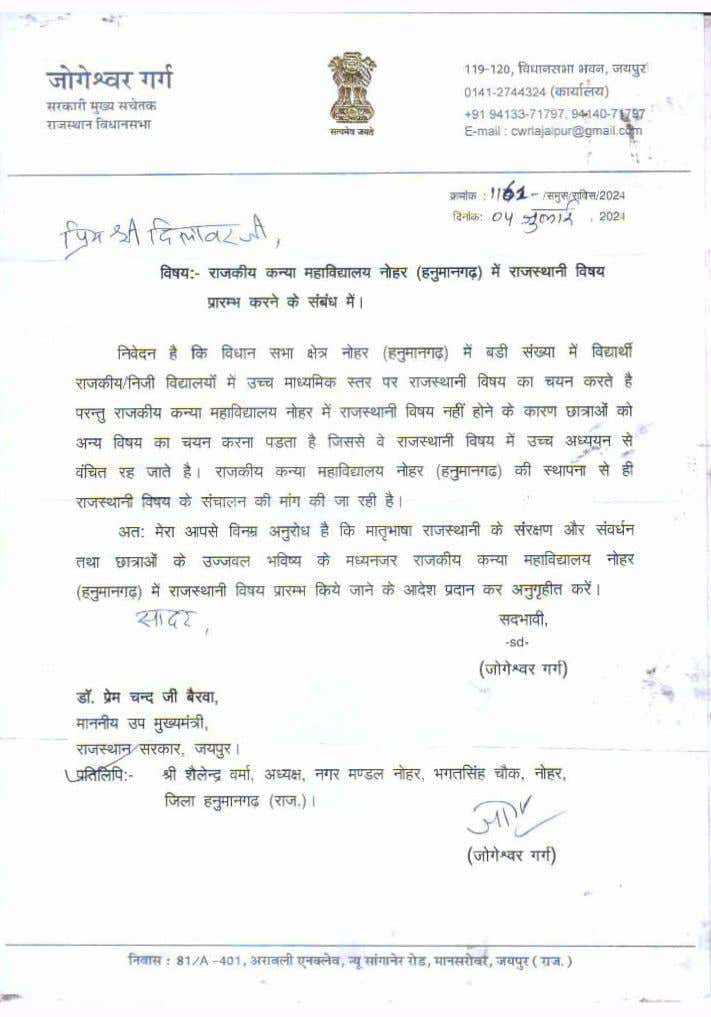 जोगेश्वर गर्ग
सरकारी मुख्य सचेतक
राजस्थान विधानसभा
सत्यमेव जयते
119-120, विधानसभा भवन, जयपुर
0141-2744324 (कार्यालय)
+91 94133-71797, 94140-71797
E-mail : cwrlajaipur@gmail.com
क्रमांक : 1162- /समुस/राविस/2024
दिनांक: 04 जुलाई , 2024
प्रिय श्री दिलावर जी,
विषय:- राजकीय कन्या महाविद्यालय नोहर (हनुमानगढ़) में राजस्थानी विषय
प्रारम्भ करने के संबंध में।
निवेदन है कि विधान सभा क्षेत्र नोहर (हनुमानगढ़) में बडी संख्या में विद्यार्थी
राजकीय/निजी विद्यालयों में उच्च माध्यमिक स्तर पर राजस्थानी विषय का चयन करते है
परन्तु राजकीय कन्या महाविद्यालय नोहर में राजस्थानी विषय नहीं होने के कारण छात्राओं को
अन्य विषय का चयन करना पड़ता है जिससे वे राजस्थानी विषय में उच्च अध्ययन से
वंचित रह जाते है। राजकीय कन्या महाविद्यालय नोहर (हनुमानगढ) की स्थापना से ही
राजस्थानी विषय के संचालन की मांग की जा रही है।
अत: मेरा आपसे विनम्र अनुरोध है कि मातृभाषा राजस्थानी के संरक्षण और संवर्धन
तथा छात्राओं के उज्जवल भविष्य के मध्यनजर राजकीय कन्या महाविद्यालय नोहर
(हनुमानगढ़) में राजस्थानी विषय प्रारम्भ किये जाने के आदेश प्रदान कर अनुगृहीत करें।
सादर,
सदभावी,
-sd-
(जोगेश्वर गर्ग)
डॉ. प्रेम चन्द जी बैरवा,
माननीय उप मुख्यमंत्री,
राजस्थान सरकार, जयपुर।
प्रतिलिपि:- श्री शैलेन्द्र वर्मा, अध्यक्ष, नगर मण्डल नोहर, भगतसिंह चौक, नोहर,
जिला हनुमानगढ़ (राज.)।
(जोगेश्वर गर्ग)
निवास : 81/A -401, अरावली एनक्लेव, न्यू सांगानेर रोड, मानसरोवर, जयपुर ( राज. )